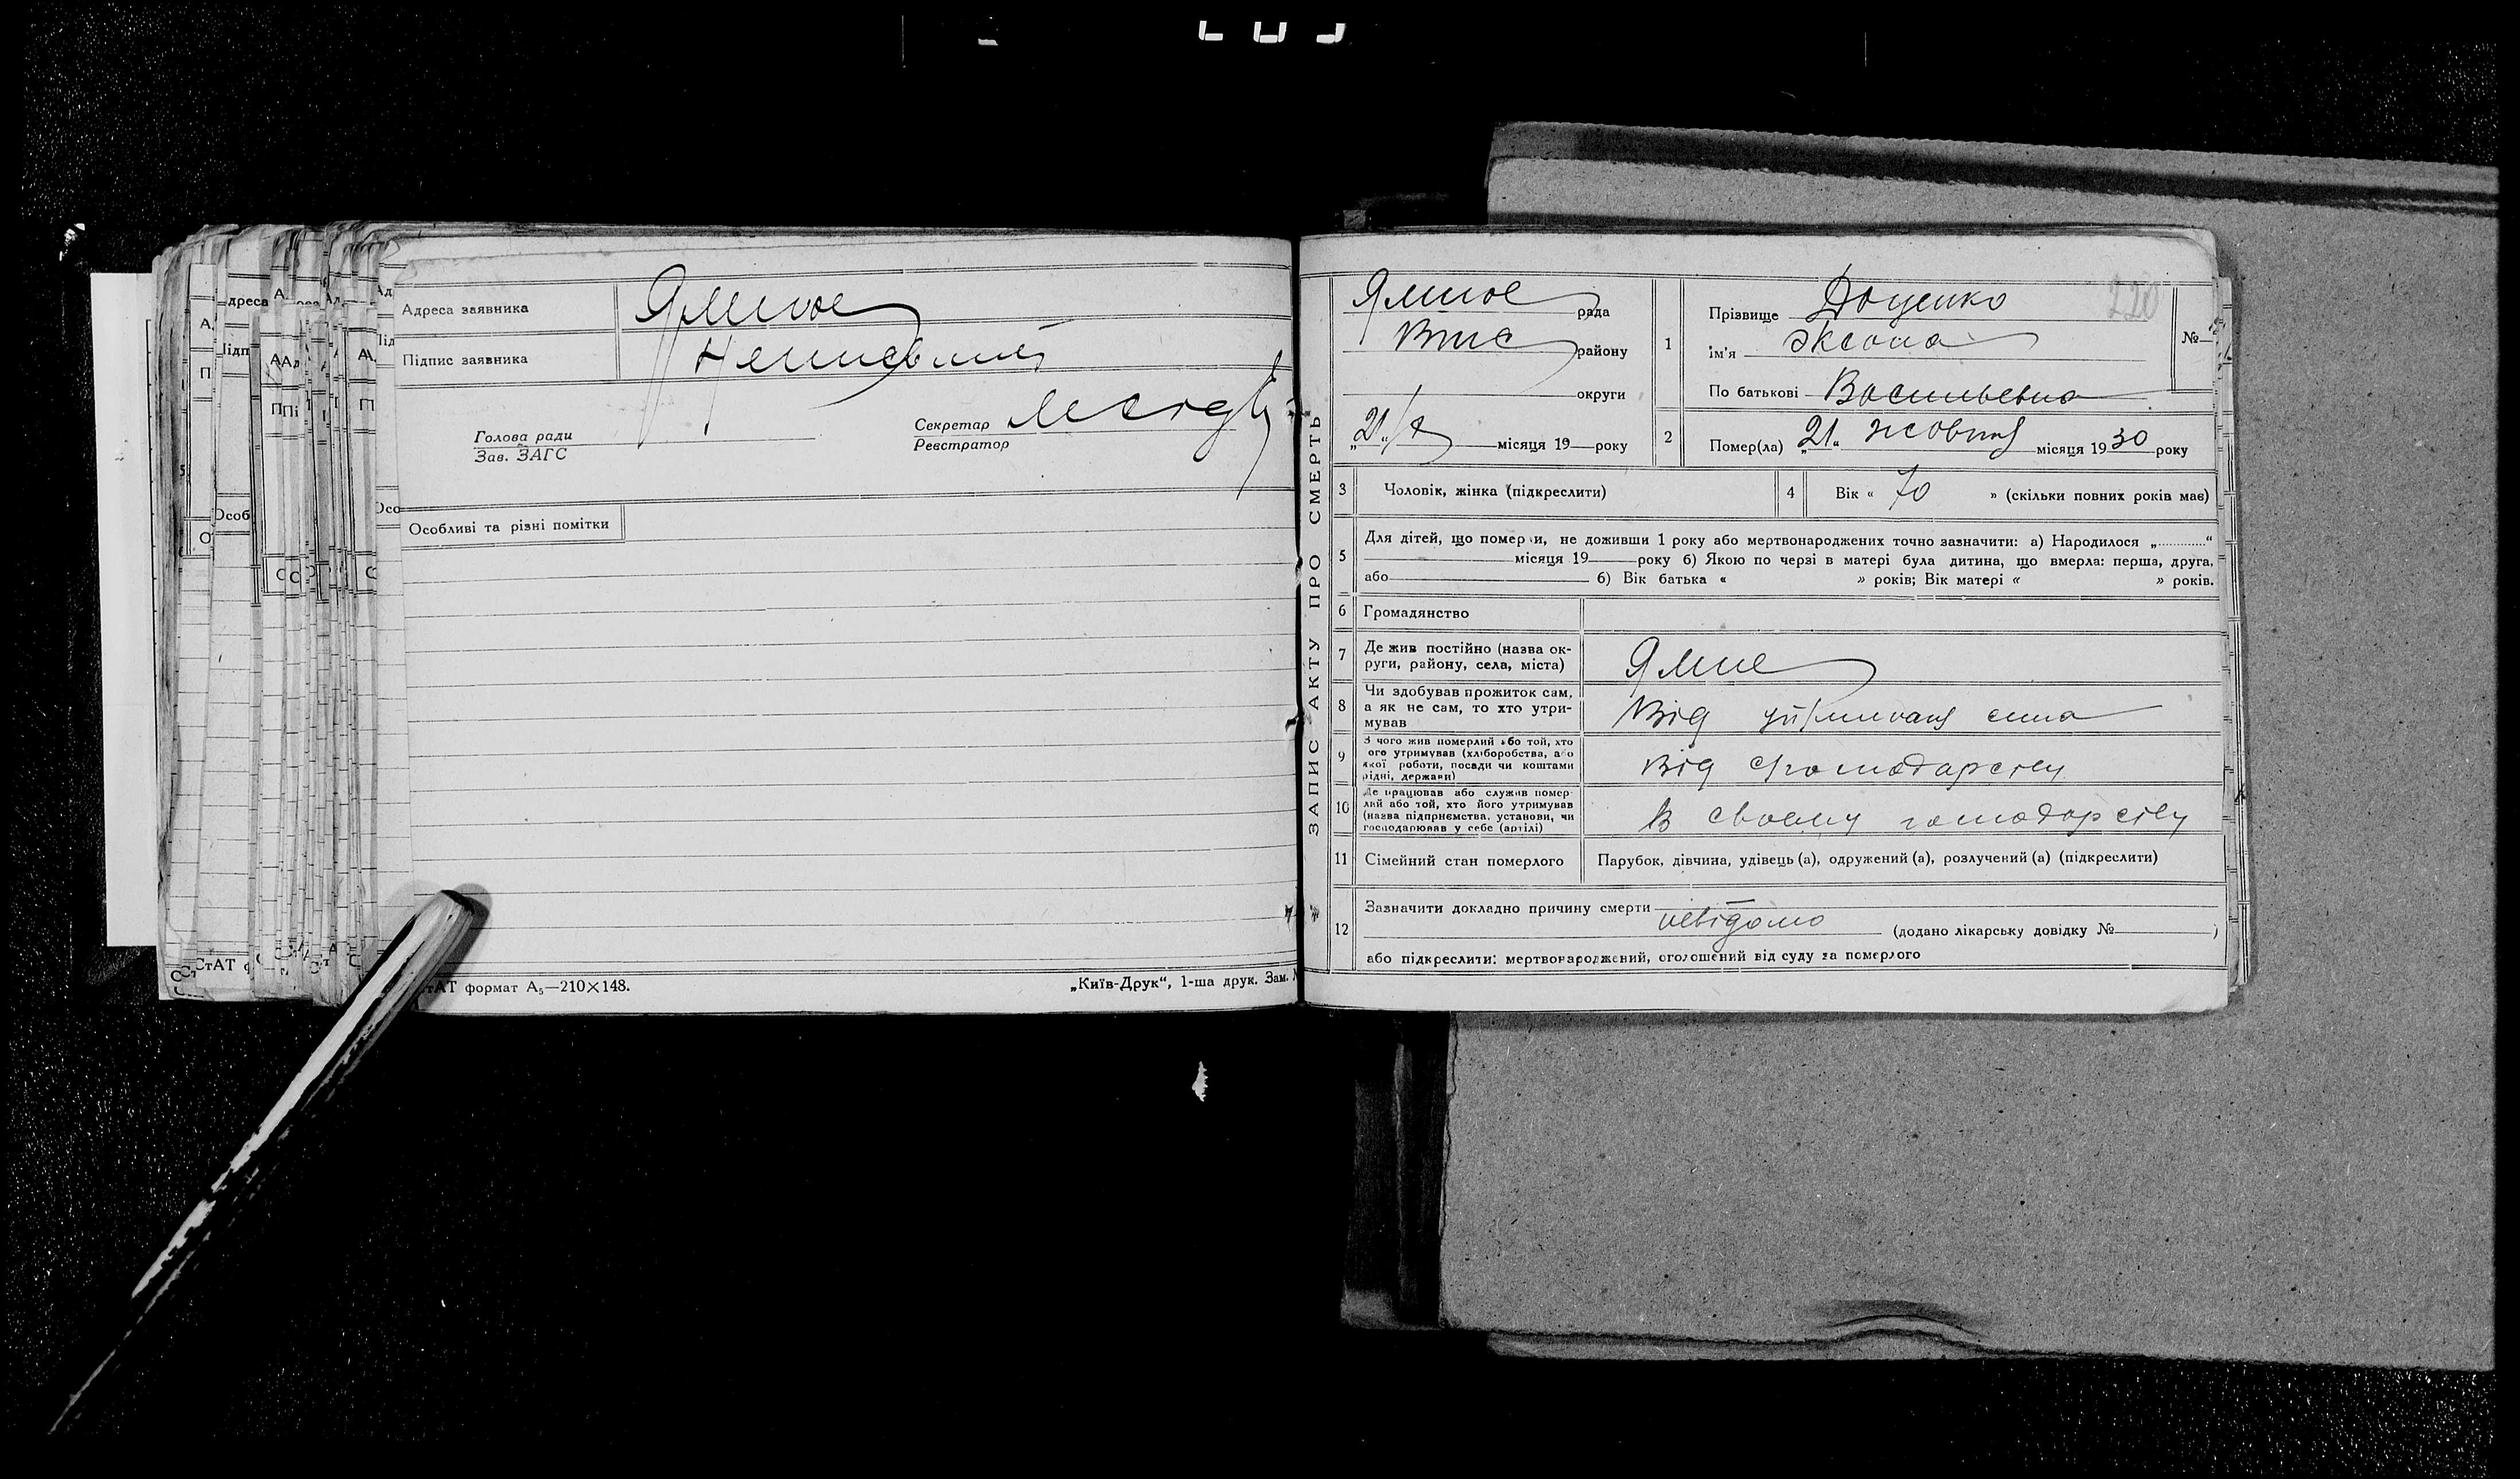 Адреса заявника Ямное
Підпис заявника
Голова ради
Зав. ЗАГС
Секретар
Реєстратор
Особливі та різні помітки
СтАТ формат А₅—210×148.
„Київ-Друк“, 1-ша друк. Зам.
ЗАПИС АКТУ ПРО СМЕРТЬ
Ямное рада
району
округи
„21“ місяця 19 року
220
№
1 Прізвище Доценко
Ім'я
По батькові Васильевна
2 Помер(ла) „21“ жовтня місяця 1930 року
3 Чоловік, жінка (підкреслити)
4 Вік « 70 » (скільки повних років має)
5 Для дітей, що померли, не доживши 1 року або мертвонароджених точно зазначити: а) Народилося „............“
місяця 19 року б) Якою по черзі в матері була дитина, що вмерла: перша, друга,
або б) Вік батька « » років; Вік матері « » років.
6 Громадянство
7 Де жив постійно (назва ок-
руги, району, села, міста) Ямне
8 Чи здобував прожиток сам,
а як не сам, то хто утри-
мував Від утримання сина
9 З чого жив померлий або той, хто
ого утримував (хліборобства, або
якої роботи, посади чи коштами
рідні, держави) Від
10 Де працював або служив помер-
лий або той, хто його утримував
(назва підприємства, установи, чи
господарював у себе (артілі) В своему господарству
11 Сімейний стан померлого Парубок, дівчина, удівець (а), одружений (а), розлучений (а) (підкреслити)
12 Зазначити докладно причину смерти
невідомо (додано лікарську довідку № )
або підкреслити: мертвонароджений, оголошений від суду за померлого